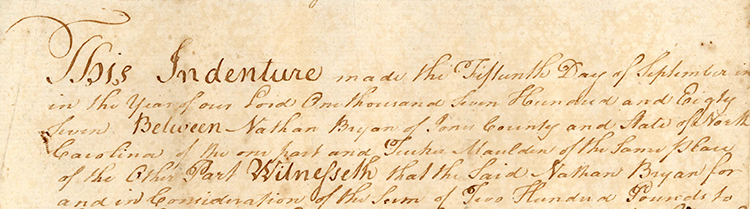 This Indenture made the Fifteenth Day of September in
in the Year of our Lord One thousand Seven Hundred and Eighty
Seven Between Nathan Bryan of Jones County and State of North
Carolina of the one part and Tucker Maulden of the Same place
of the Other Part Witnesseth that the Said Nathan Bryan for
and in Consideration of the Sum of Two Hundred Pounds to